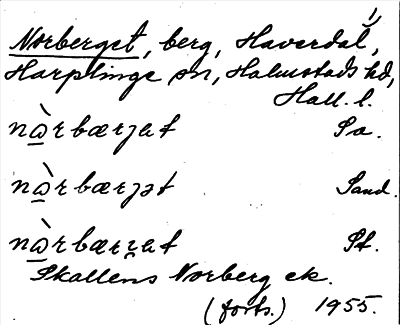 1/
Norberget, berg, Haverdal,
Harplinge sn, Halmstads hd,
Hall. l.
nà̱rbærȷat Sa.
nà̱rbærȷət Sand.
nà̱rbærʐat St.
Skallens Norberg ek.
(forts.) 1955.